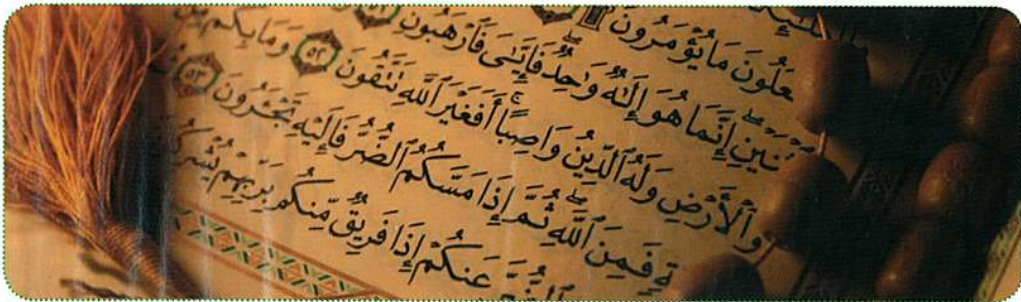 عَلُونَ مَا يُؤْمَرُونَ ۩
ثْنَيْنِ إِنَّمَا هُوَ إِلَٰهٌ وَٰحِدٌ فَإِيَّٰيَ فَٱرْهَبُونِ ٥١
وَٱلْأَرْضِ وَلَهُ ٱلدِّينُ وَاصِبًا ۚ أَفَغَيْرَ ٱللَّهِ تَتَّقُونَ ٥٢ وَمَا بِكُم
ةٍ فَمِنَ ٱللَّهِ ۖ ثُمَّ إِذَا مَسَّكُمُ ٱلضُّرُّ فَإِلَيْهِ تَجْـَٔرُونَ ٥٣
عَنكُمْ إِذَا فَرِيقٌ مِّنكُم بِرَبِّهِمْ يُشْرِكُ